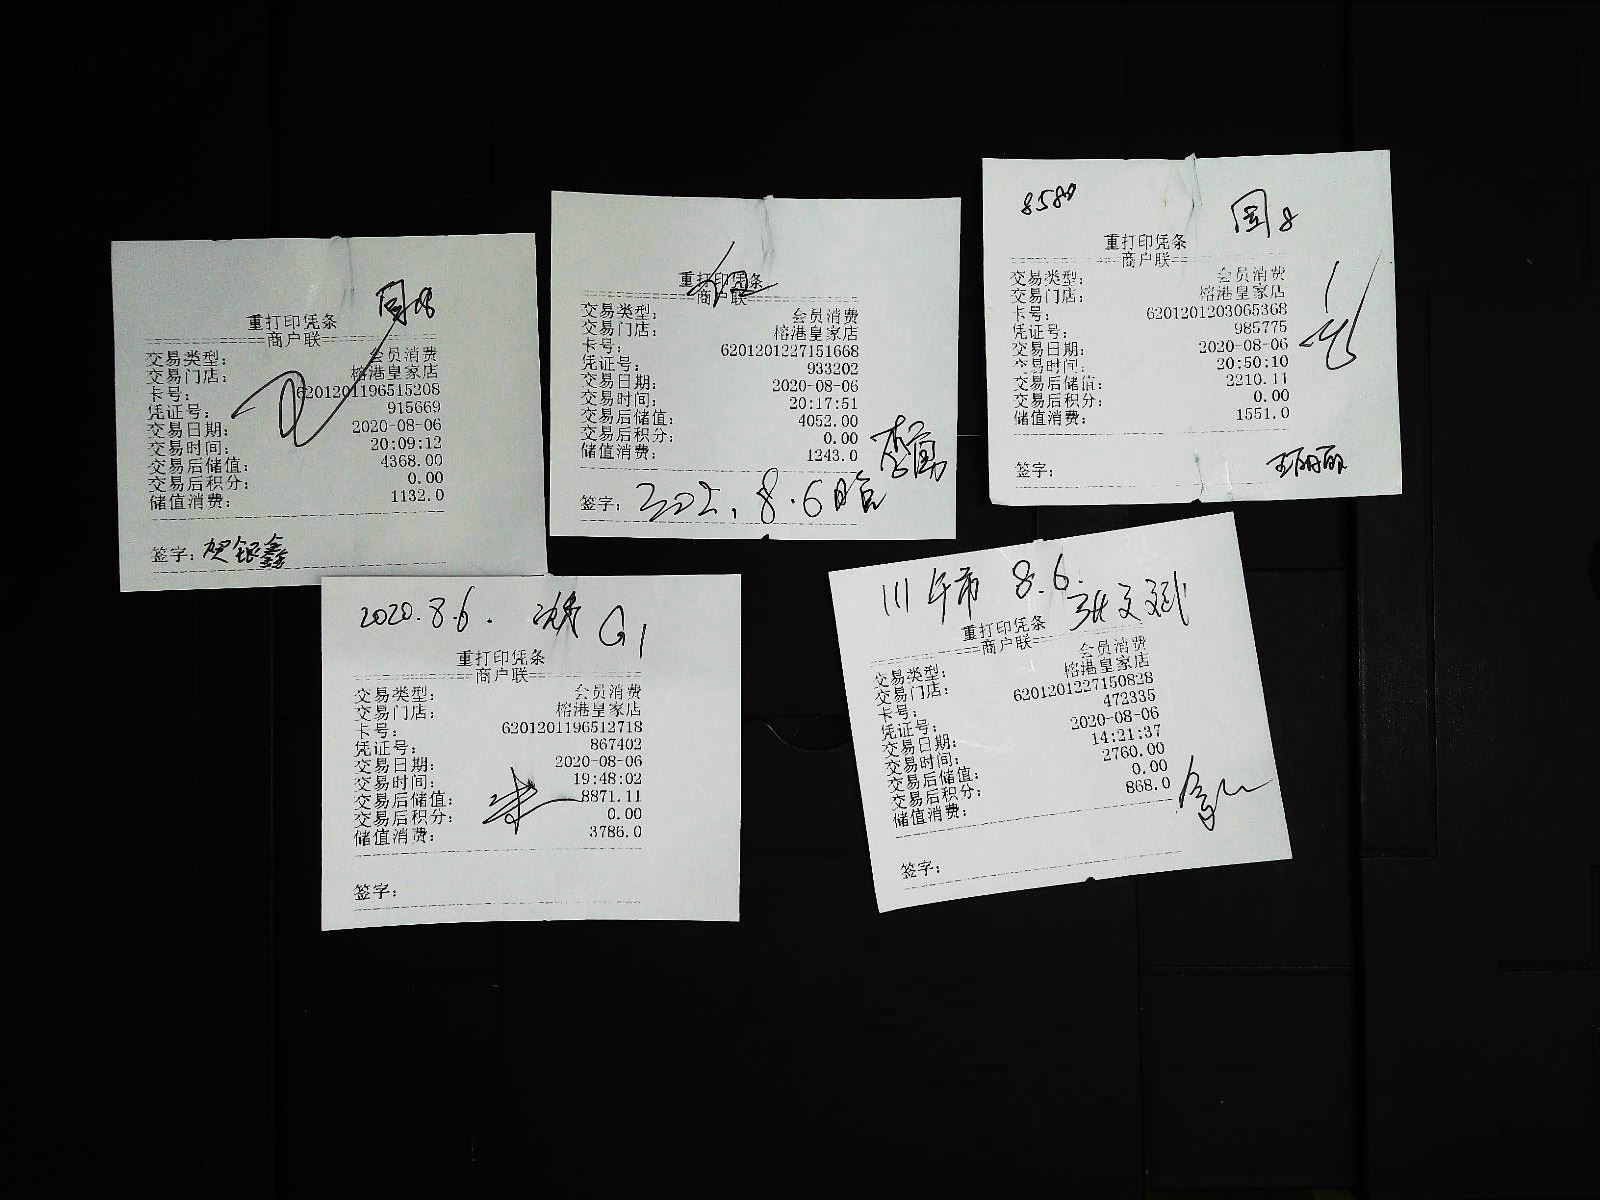 重打印凭条
商户联
交易类型: 会员消费
交易门店: 榕港皇家店
卡号: 6201201196515208
凭证号: 915669
交易日期: 2020-08-06
交易时间: 20:09:12
交易后储值: 4368.00
交易后积分: 0.00
储值消费: 1132.0
签字: 贺银鑫
重打印凭条
商户联
交易类型: 会员消费
交易门店: 榕港皇家店
卡号: 6201201227151668
凭证号: 933202
交易日期: 2020-08-06
交易时间: 20:17:51
交易后储值: 4052.00
交易后积分: 0.00
储值消费: 1243.0
李勇
签字: 8.6
8580
重打印凭条
商户联
交易类型: 会员消费
交易门店: 榕港皇家店
卡号: 6201201203065368
凭证号: 985775
交易日期: 2020-08-06
交易时间: 20:50:10
交易后储值: 2210.11
交易后积分: 0.00
储值消费: 1551.0
签字: 王丽丽
2020.8.6. G1
重打印凭条
商户联
交易类型: 会员消费
交易门店: 榕港皇家店
卡号: 6201201196512718
凭证号: 867402
交易日期: 2020-08-06
交易时间: 19:48:02
交易后储值: 8871.11
交易后积分: 0.00
储值消费: 3786.0
签字:
111 午市 8.6. 张文斌
重打印凭条
商户联
交易类型: 会员消费
交易门店: 榕港皇家店
卡号: 6201201227150828
凭证号: 472335
交易日期: 2020-08-06
交易时间: 14:21:37
交易后储值: 2760.00
交易后积分: 0.00
储值消费: 868.0
签字: